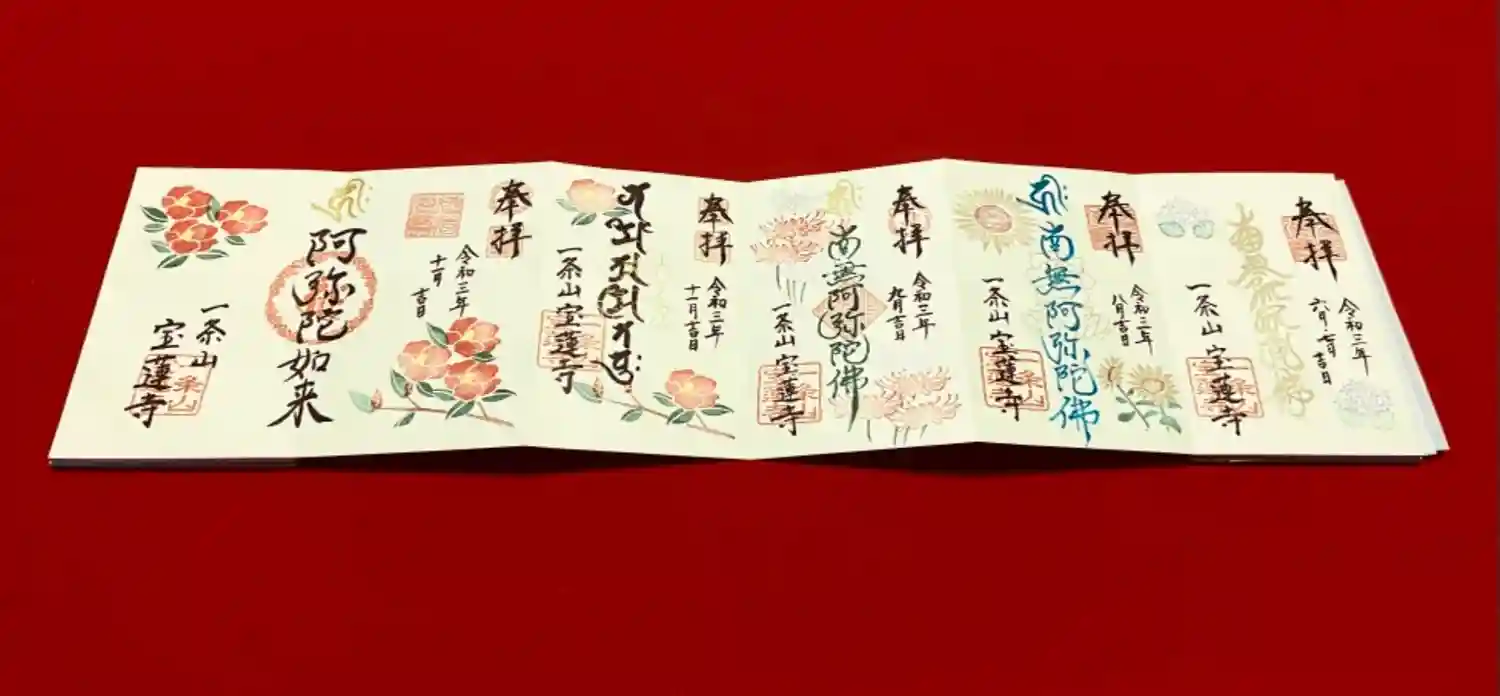 奉拝
令和三年
六月、七月吉日
南無阿弥陀佛
一条山 宝蓮寺
奉拝
令和三年
八月吉日
南無阿弥陀佛
一条山 宝蓮寺
奉拝
令和三年
九月吉日
南無阿弥陀佛
一条山 宝蓮寺
奉拝
令和三年
十一月吉日
一条山 宝蓮寺
奉拝
令和三年
十一月 吉日
阿弥陀如来
一条山
宝蓮寺